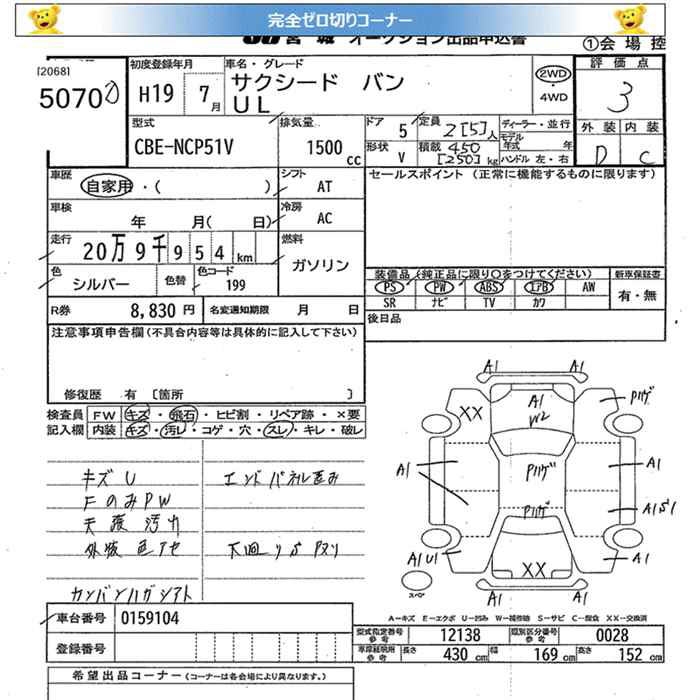 完全ゼロ切りコーナー
JU宮城 オークション出品申込書
①会場控
[2068]
5070
初度登録年月
H19 7月
車名・グレード
サクシード バン
UL
2WD
・
4WD
評価点
3
外装 内装
D C
型式
CBE-NCP51V
排気量
1500cc
ドア 5
形状 V
定員 2[5]人
積載 450[250]kg
ディーラー・並行
モデル年式 年
ハンドル 左・右
車歴
自家用・( )
シフト
AT
セールスポイント (正常に機能するものに限ります)
車検
年 月( 日)
冷房
AC
走行
20万9千954km
燃料
ガソリン
色
シルバー
色替
色コード
199
装備品(純正品に限り○をつけてください)
PS PW ABS エアB AW
SR ナビ TV カワ
新車保証書
有・無
R券
8,830円
名変通知期限 月 日
後日品
注意事項申告欄(不具合内容等は具体的に記入して下さい)
修復歴 有 [箇所 ]
検査員 FW キズ・飛石・ヒビ割・リペア跡・×要
記入欄 内装 キズ・汚レ・コゲ・穴・スレ・キレ・破レ
キズU
FのみPW
天張汚れ
外装色アセ
カンバンハガシアト
エンドパネル歪み
下回りサビ
A1 A1
XX
A1
W2
Pハゲ
A1
Pハゲ
A1
Pハゲ
A1U1
A1
XX
A1 A1
スペア
A-キズ E-エクボ U-凹み W-補修跡 S-サビ C-腐食 XX-交換済
車台番号 0159104
登録番号
型式指定番号参考 12138
類別区分番号参考 0028
車庫証明用参考 長さ 430cm 幅 169cm 高さ 152cm
希望出品コーナー(コーナーは各会場により異なります。)